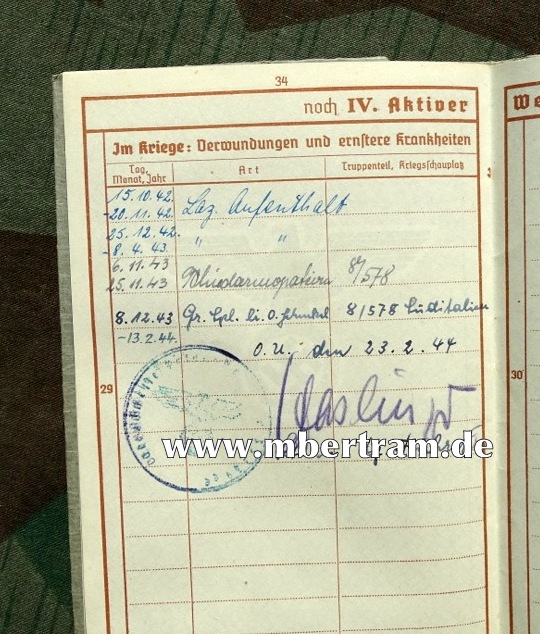 34
noch IV. Aktiver
We
Im Kriege: Verwundungen und ernstere Krankheiten
Tag, Monat, Jahr Art Truppenteil, Kriegsschauplatz
15.10.42. Laz. Aufenthalt
-20.11.42.
25.12.42. " "
-8.4.43.
6.11.43 8/578
25.11.43
8.12.43 Gr. Spl. li. O. 8/578 Süditalien
-13.2.44.
O.U., den 23.2.44
29
30
www.mbertram.de